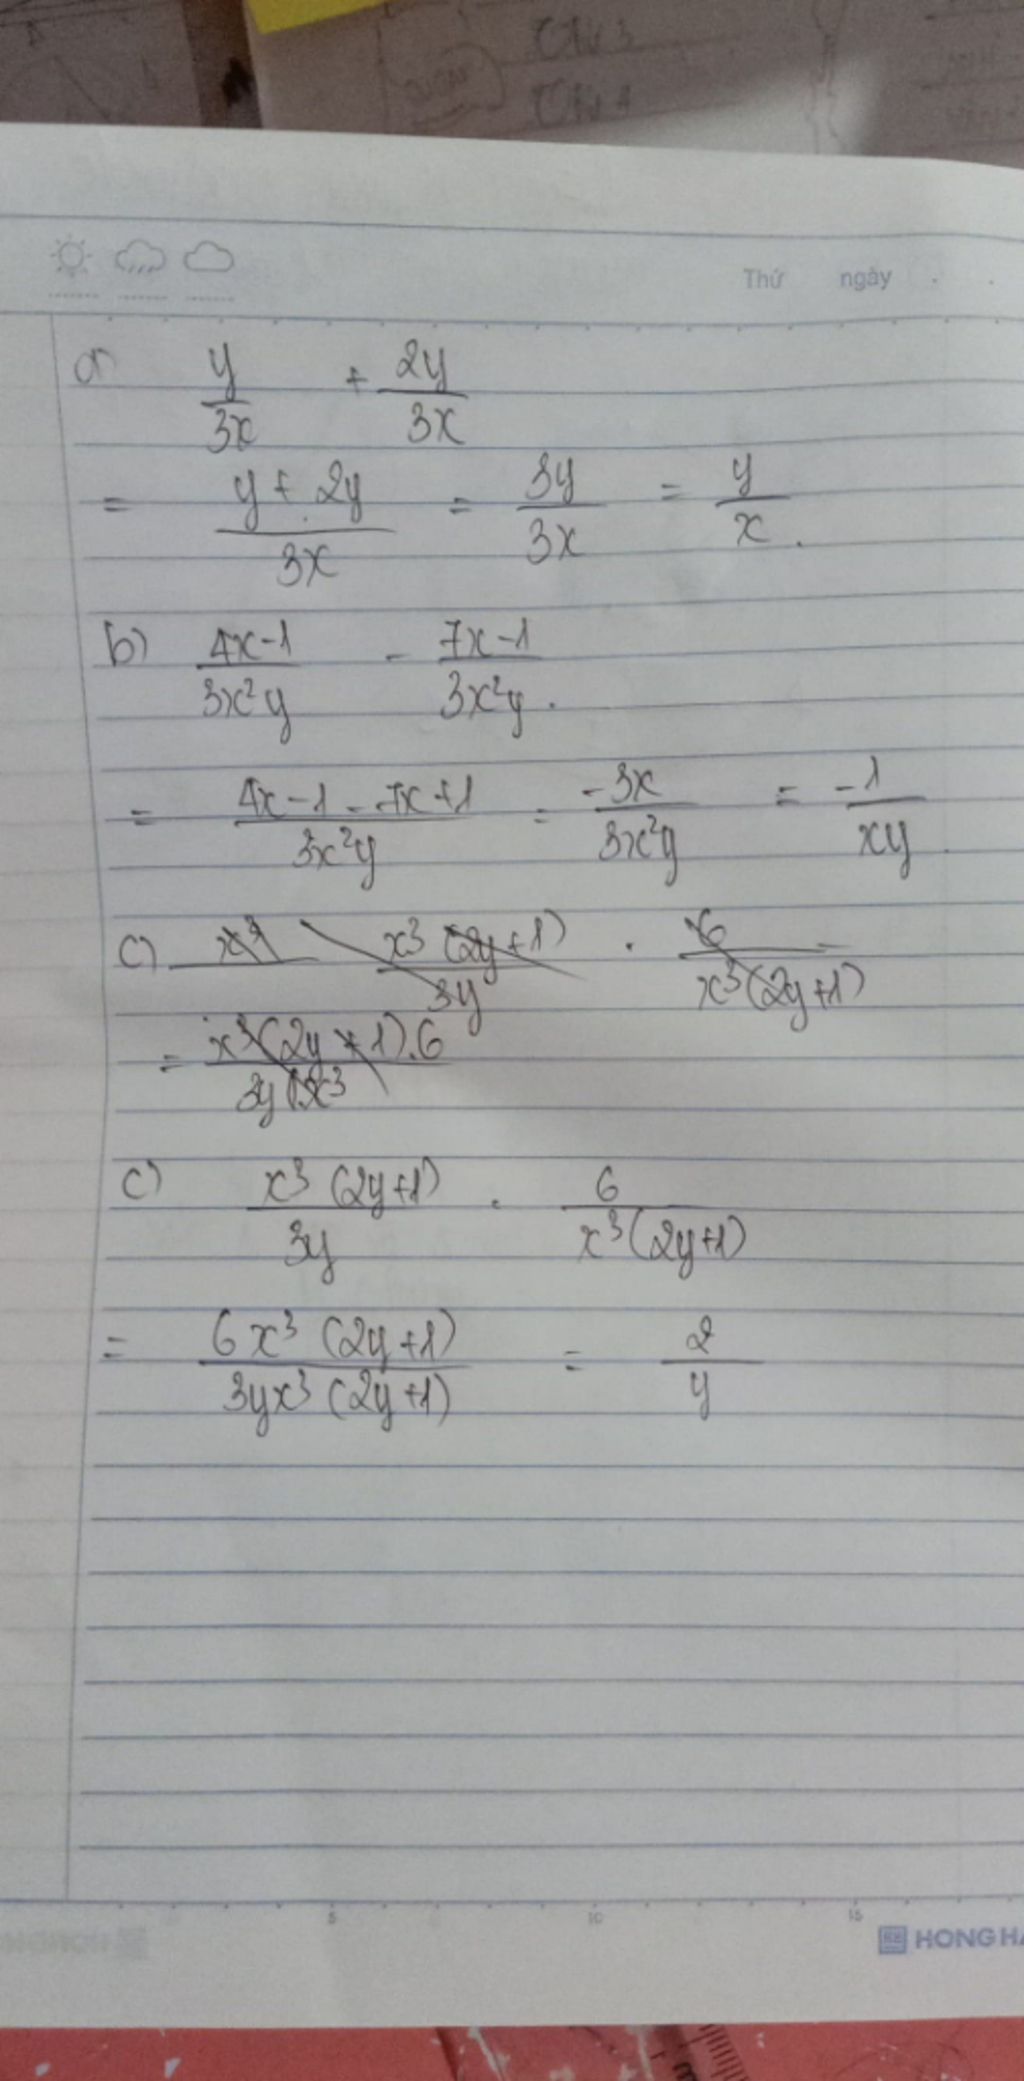 Thứ ngày
a) y/3x + 2y/3x
= (y + 2y)/3x = 3y/3x = y/x.
b) (4x-1)/3x²y - (7x-1)/3x²y.
= (4x-1-7x+1)/3x²y = -3x/3x²y = -1/xy
c) x³ x³(2y+1)/3y . 6/x³(2y+1)
= x³(2y+1).6/3y x³
c) x³(2y+1)/3y . 6/x³(2y+1)
= 6x³(2y+1)/3yx³(2y+1) = 2/y
5 10 15
HONG HA